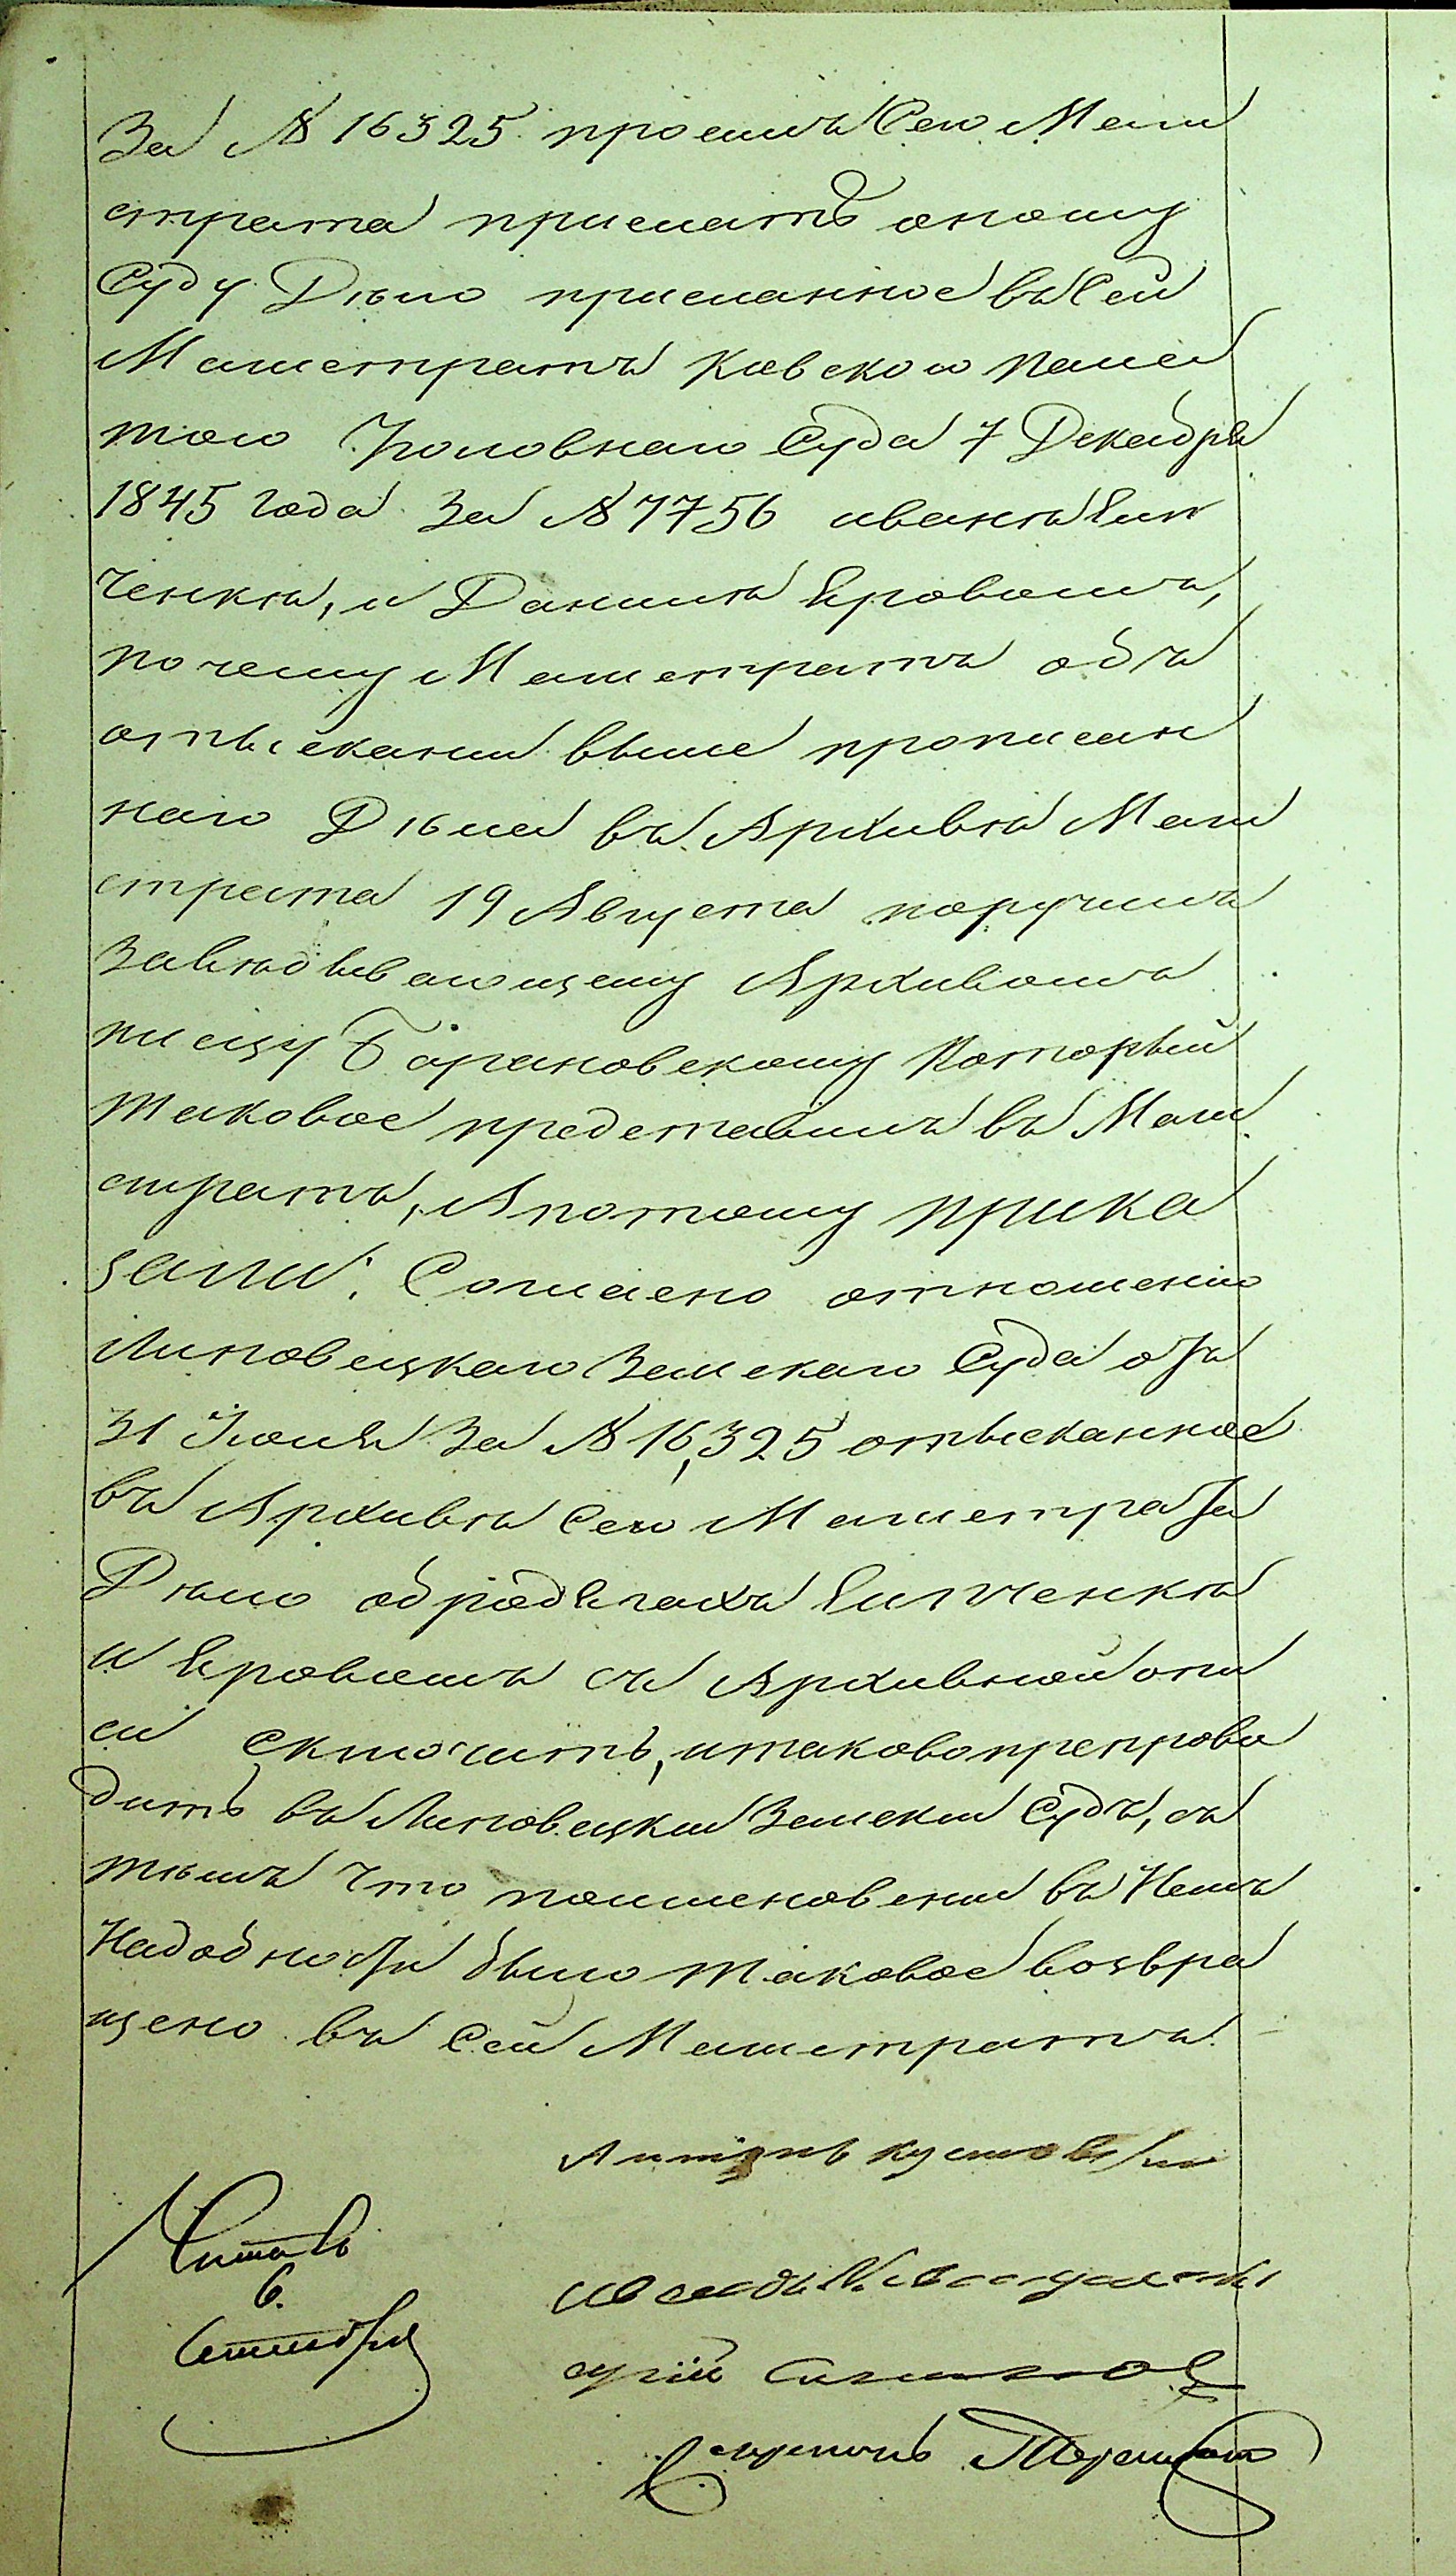 За № 16325 проситъ Сего Маги
страта прислать оному
Суду Дѣло присланное въ Сей
Магистратъ Киевскою Пала
тою Уголовнаго Суда 7 Декабря
1845 года за № 7756 ивана Лип
ченка, и Данила Яровома,
почему Магистратъ объ
отысканіи выше прописан
наго Дѣла въ Архивѣ Маги
страта 19 Августа поручилъ
Завѣдывающему Архивомъ
писцу Барановскому Который
таковое представилъ въ Маги
стратъ, А потому прика
зали: Согласно отношенію
Липовецкаго Земскаго Суда отъ
31 Июля За № 16,325 отысканное
въ Архивѣ Сего Магистрата
Дѣло о бродягахъ Липченкѣ
и Яровомъ съ Архивной опи
си Сключить, и таково препрово
дить въ Липовецкий Земский Судъ, съ
тѣмъ что по минованіи въ Немъ
Надобности было таковое возвра
щено въ Сей Магистратъ.
Читалъ
6.
Сентября
Секретарь